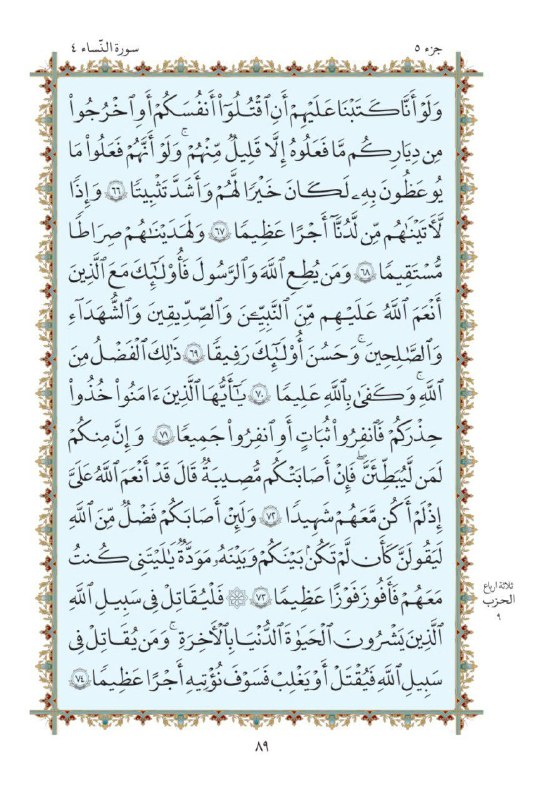 جزء ٥
سورة النّساء ٤
وَلَوۡ أَنَّا كَتَبۡنَا عَلَيۡهِمۡ أَنِ ٱقۡتُلُوٓاْ أَنفُسَكُمۡ أَوِ ٱخۡرُجُواْ
مِن دِيَٰرِكُم مَّا فَعَلُوهُ إِلَّا قَلِيلٞ مِّنۡهُمۡۖ وَلَوۡ أَنَّهُمۡ فَعَلُواْ مَا
يُوعَظُونَ بِهِۦ لَكَانَ خَيۡرٗا لَّهُمۡ وَأَشَدَّ تَثۡبِيتٗا ٦٦ وَإِذٗا
لَّأٓتَيۡنَٰهُم مِّن لَّدُنَّآ أَجۡرًا عَظِيمٗا ٦٧ وَلَهَدَيۡنَٰهُمۡ صِرَٰطٗا
مُّسۡتَقِيمٗا ٦٨ وَمَن يُطِعِ ٱللَّهَ وَٱلرَّسُولَ فَأُوْلَٰٓئِكَ مَعَ ٱلَّذِينَ
أَنۡعَمَ ٱللَّهُ عَلَيۡهِم مِّنَ ٱلنَّبِيِّـۧنَ وَٱلصِّدِّيقِينَ وَٱلشُّهَدَآءِ
وَٱلصَّٰلِحِينَۚ وَحَسُنَ أُوْلَٰٓئِكَ رَفِيقٗا ٦٩ ذَٰلِكَ ٱلۡفَضۡلُ مِنَ
ٱللَّهِۚ وَكَفَىٰ بِٱللَّهِ عَلِيمٗا ٧٠ يَٰٓأَيُّهَا ٱلَّذِينَ ءَامَنُواْ خُذُواْ
حِذۡرَكُمۡ فَٱنفِرُواْ ثُبَاتٍ أَوِ ٱنفِرُواْ جَمِيعٗا ٧١ وَإِنَّ مِنكُمۡ
لَمَن لَّيُبَطِّئَنَّۖ فَإِنۡ أَصَٰبَتۡكُم مُّصِيبَةٞ قَالَ قَدۡ أَنۡعَمَ ٱللَّهُ عَلَيَّ
إِذۡ لَمۡ أَكُن مَّعَهُمۡ شَهِيدٗا ٧٢ وَلَئِنۡ أَصَٰبَكُمۡ فَضۡلٞ مِّنَ ٱللَّهِ
لَيَقُولَنَّ كَأَن لَّمۡ تَكُنۢ بَيۡنَكُمۡ وَبَيۡنَهُۥ مَوَدَّةٞ يَٰلَيۡتَنِي كُنتُ
مَعَهُمۡ فَأَفُوزَ فَوۡزًا عَظِيمٗا ٧٣ ۞ فَلۡيُقَٰتِلۡ فِي سَبِيلِ ٱللَّهِ
ٱلَّذِينَ يَشۡرُونَ ٱلۡحَيَوٰةَ ٱلدُّنۡيَا بِٱلۡأٓخِرَةِۚ وَمَن يُقَٰتِلۡ فِي
سَبِيلِ ٱللَّهِ فَيُقۡتَلۡ أَوۡ يَغۡلِبۡ فَسَوۡفَ نُؤۡتِيهِ أَجۡرًا عَظِيمٗا ٧٤
ثلاثة ارباع
الحزب
٩
٨٩